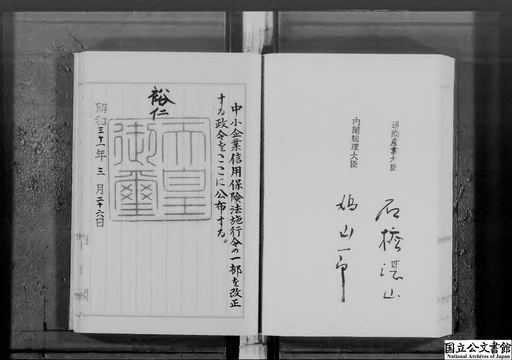 中小企業信用保険法施行令の一部を改正
する政令をここに公布する。
裕仁
天皇
御璽
昭和三十一年三月二十六日
通商産業大臣
石橋湛山
内閣総理大臣
鳩山一郎
国立公文書館
National Archives of Japan